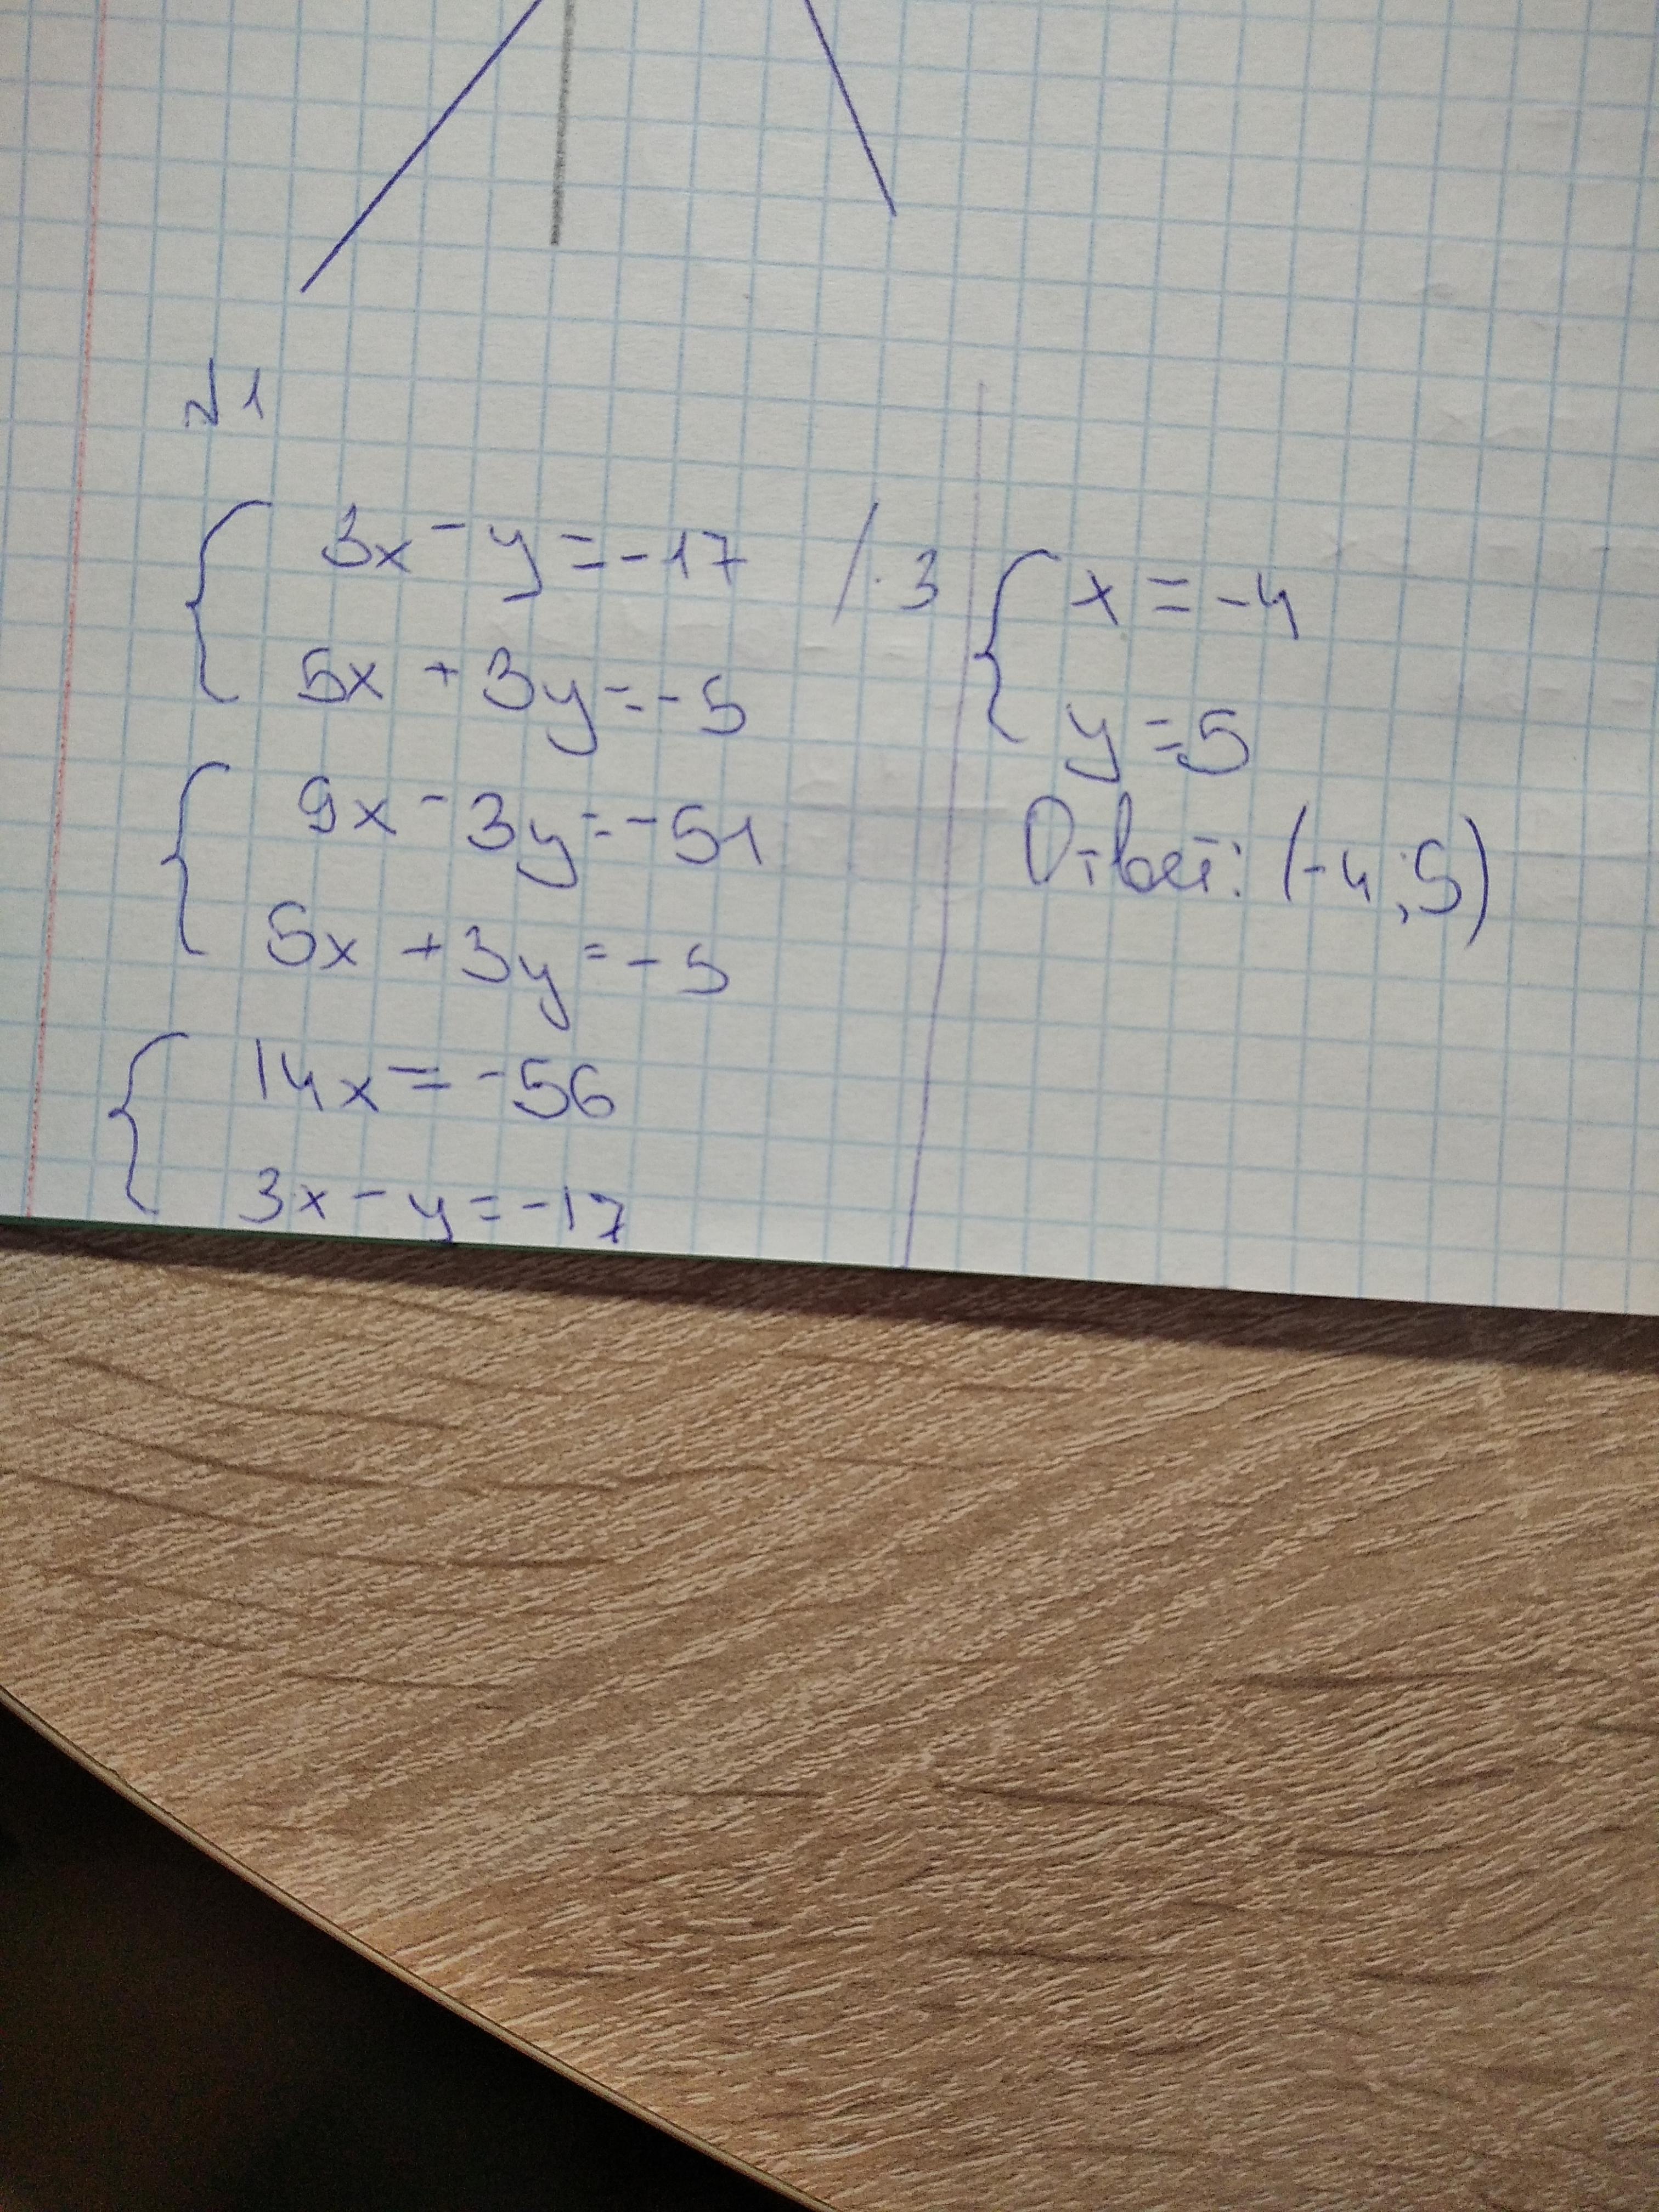 №1
3x - y = -17 / · 3
5x + 3y = -5
9x - 3y = -51
5x + 3y = -5
14x = -56
3x - y = -17
x = -4
y = 5
Ответ: (-4; 5)